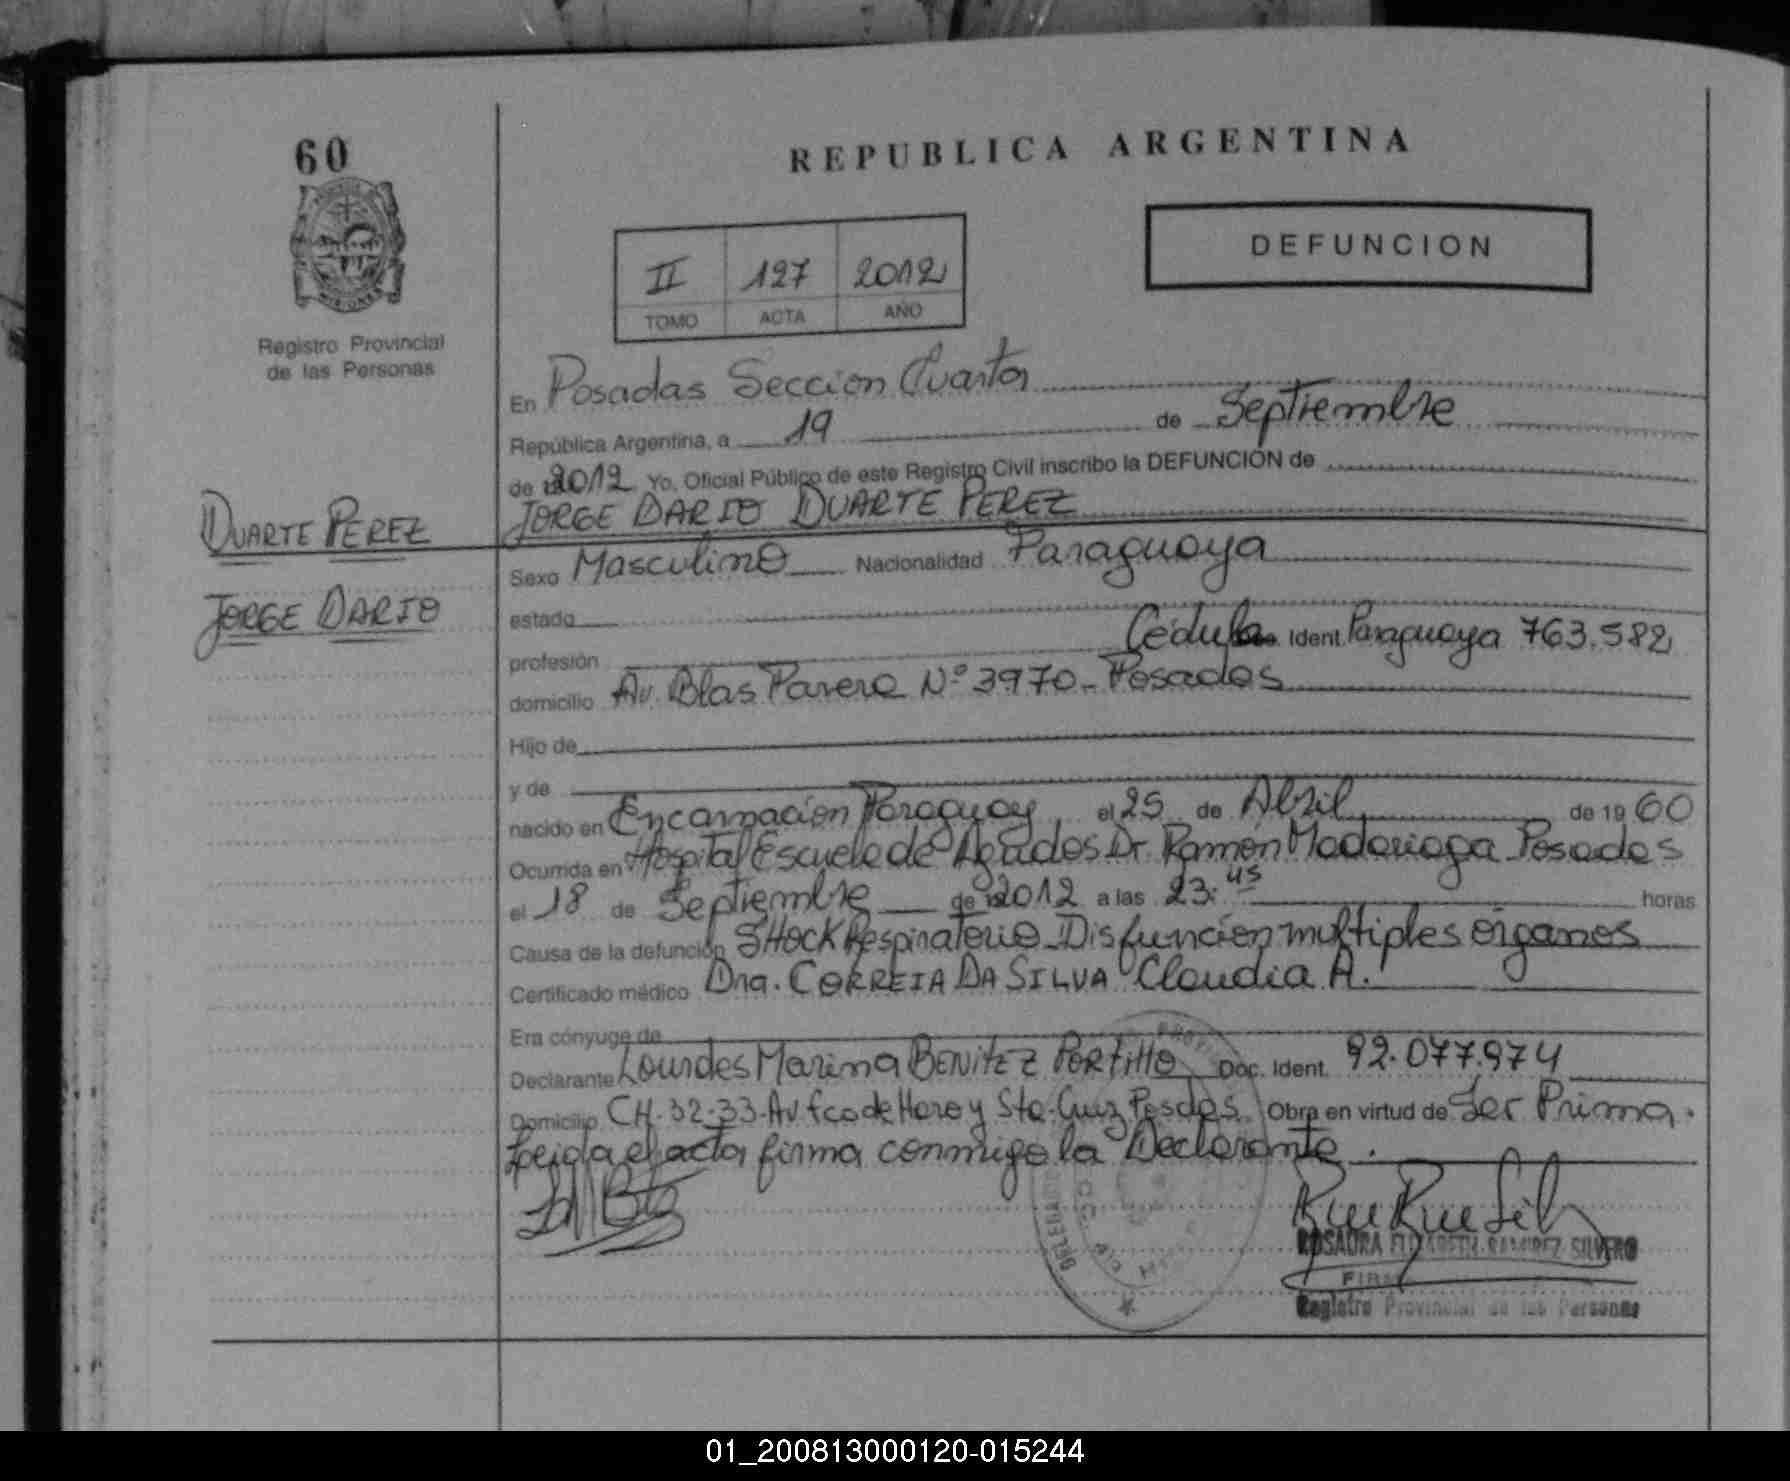 60
REPUBLICA ARGENTINA
DEFUNCION
II 127 2012
TOMO ACTA AÑO
MISIONES
Registro Provincial
de las Personas
En Posadas Sección Cuarta
República Argentina, a 19 de Septiembre
de 2012 Yo, Oficial Público de este Registro Civil inscribo la DEFUNCIÓN de
DUARTE PEREZ
JORGE DARIO DUARTE PEREZ
Sexo Masculino Nacionalidad Paraguaya
JORGE DARIO
estado
profesión Cédula Ident. Paraguaya 763.582
domicilio Av. Blas Parera Nº 3970 - Posadas
Hijo de
y de
nacido en Encarnación Paraguay el 25 de Abril de 19 60
Ocurrida en Hospital Escuela de Agudos Dr. Ramón Madariaga Posadas
el 18 de Septiembre de 2012 a las 23:45 horas
Causa de la defunción SHOCK Respiratorio - Disfunción multiples órganos
Certificado médico Dra. CORREIA DA SILVA Claudia A.
Era cónyuge de
Declarante Lourdes Marina BENITEZ PORTILLO Doc. Ident. 92.077.974
Domicilio CH. 32-33-Av fco de Haro y Sta. Cruz Posdas. Obra en virtud de Ser Prima.
Leida el acta firma conmigo la Declarante.
ROSAURA ELIZABETH RAMIREZ SILVERO
Registro Provincial de las Personas
01_200813000120-015244